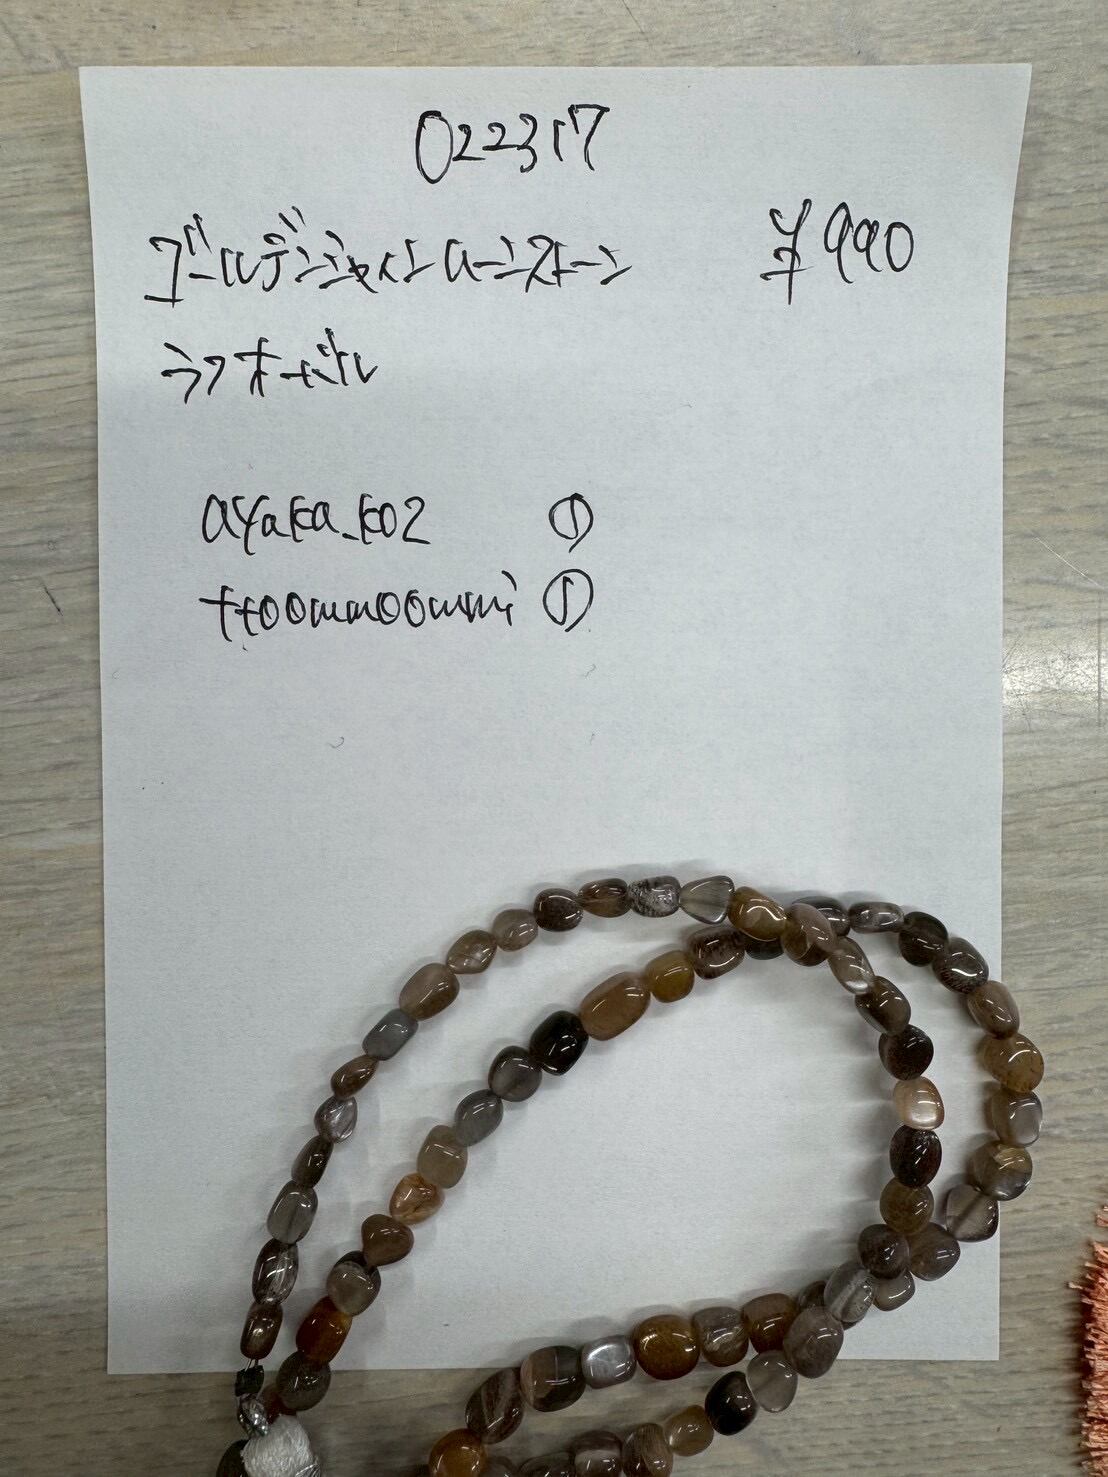 022317
ゴールデンシャインムーンストーン ¥990
ラフオーバル
ayaka_k02 ①
tt00mm00mmi ①